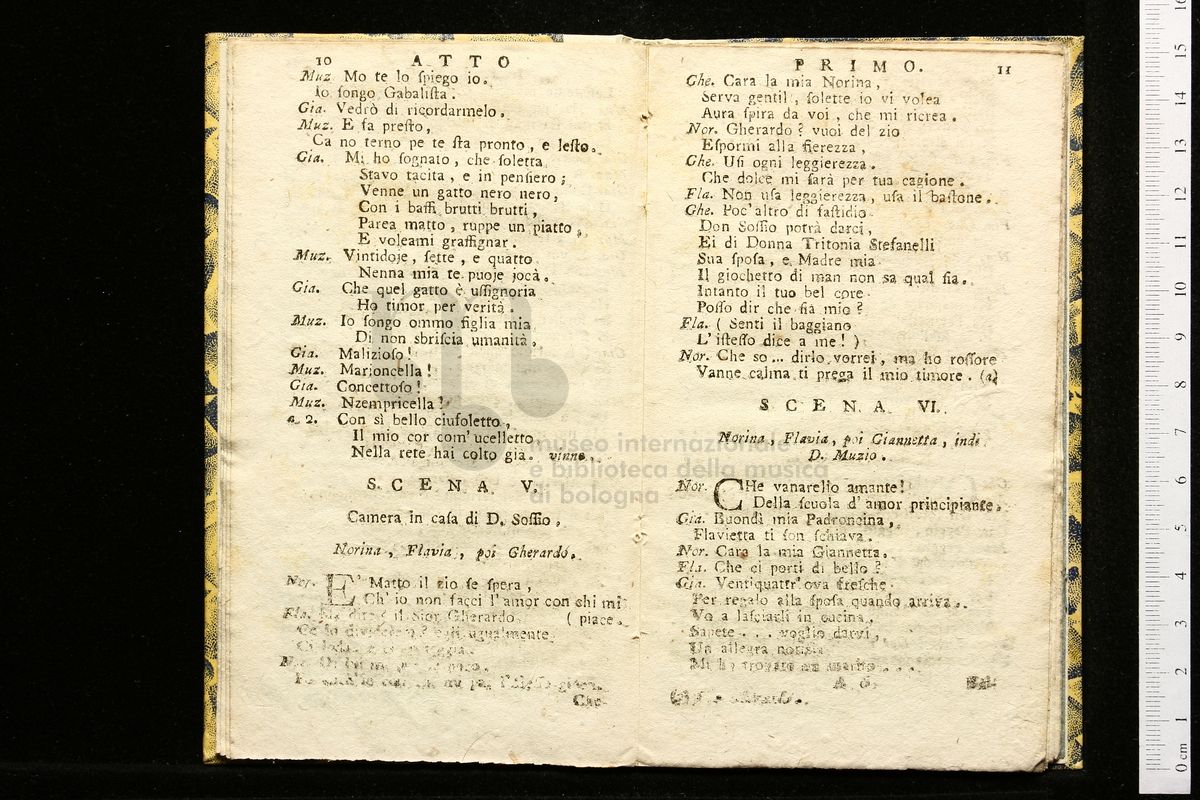 10 ATTO
Muz Mo te lo ſpiego io.
Io ſongo Gabaliſta.
Gia. Vedrò di ricordarmelo,
Muz. E fa preſto,
Ca no terno pe te ſta pronto, e leſto.
Gia. Mi ho ſognato, che ſoletta
Stavo tacita, e in penſiero;
Venne un gatto nero nero,
Con i baffi brutti brutti,
Parea matto, ruppe un piatto,
E voleami graffignar.
Muz. Vintidoje, ſette, e quatto
Nenna mia te puoje jocà.
Gia. Che quel gatto è uſſignoria
Ho timor per verità.
Muz. Io ſongo ommo figlia mia
Di non sbriſcia umanità,
Gia. Malizioſo!
Muz. Marioncella!
Gia. Concettoſo!
Muz. Nzempricella!
a 2. Con sì bello ciufoletto,
Il mio cor com' ucelletto
Nella rete hai colto già. vinno.
SCENA V.
Camera in caſa di D. Soſſio,
Norina, Flavia, poi Gherardo.
Nor. E' Matto il zio ſe ſpera,
Ch' io non facci l' amor con chi mi
Fla. il Sior Gherardo (piace.
ugualmente.
Cae-
PRIMO. 11
Ghe. Cara la mia Norina,
Serva gentil, ſolette io vi volea
Aura ſpira da voi, che mi ricrea.
Nor. Gherardo? vuoi del zio
Eſpormi alla fierezza,
Ghe. Uſi ogni leggierezza.
Che dolce mi farà per tua cagione.
Fla. Non uſa leggierezza, uſa il baſtone.
Ghe. Poc' altro di faſtidio
Don Soſſio potrà darci,
Ei di Donna Tritonia Stefanelli
Sua ſpoſa, e Madre mia
Il giochetto di man non sa qual ſia.
Intanto il tuo bel core
Poſſo dir che ſia mio?
Fla. (Senti il baggiano
L' iſteſſo dice a me!)
Nor. Che so... dirlo vorrei, ma ho roſſore
Vanne calma ti prega il mio timore. (a)
SCENA VI.
Norina, Flavia, poi Giannetta, indi
D. Muzio.
Nor. CHe vanarello amante!
Della ſcuola d' amor principiante.
Gia. Buondì mia Padroncina,
Flavietta ti ſon ſchiava.
Nor. Cara la mia Giannetta.
Fla. Che ci porti di bello?
Gia. Ventiquattr' ova freſche
Per regalo alla ſpoſa quando arriva.
Vo a laſciarli in cucina,
Sapete... voglio darvi,
Un allegra notizia
Mi ho trovato un marito....
museo internazionale
e biblioteca della musica
di bologna
0 cm 1 2 3 4 5 6 7 8 9 10 11 12 13 14 15 16